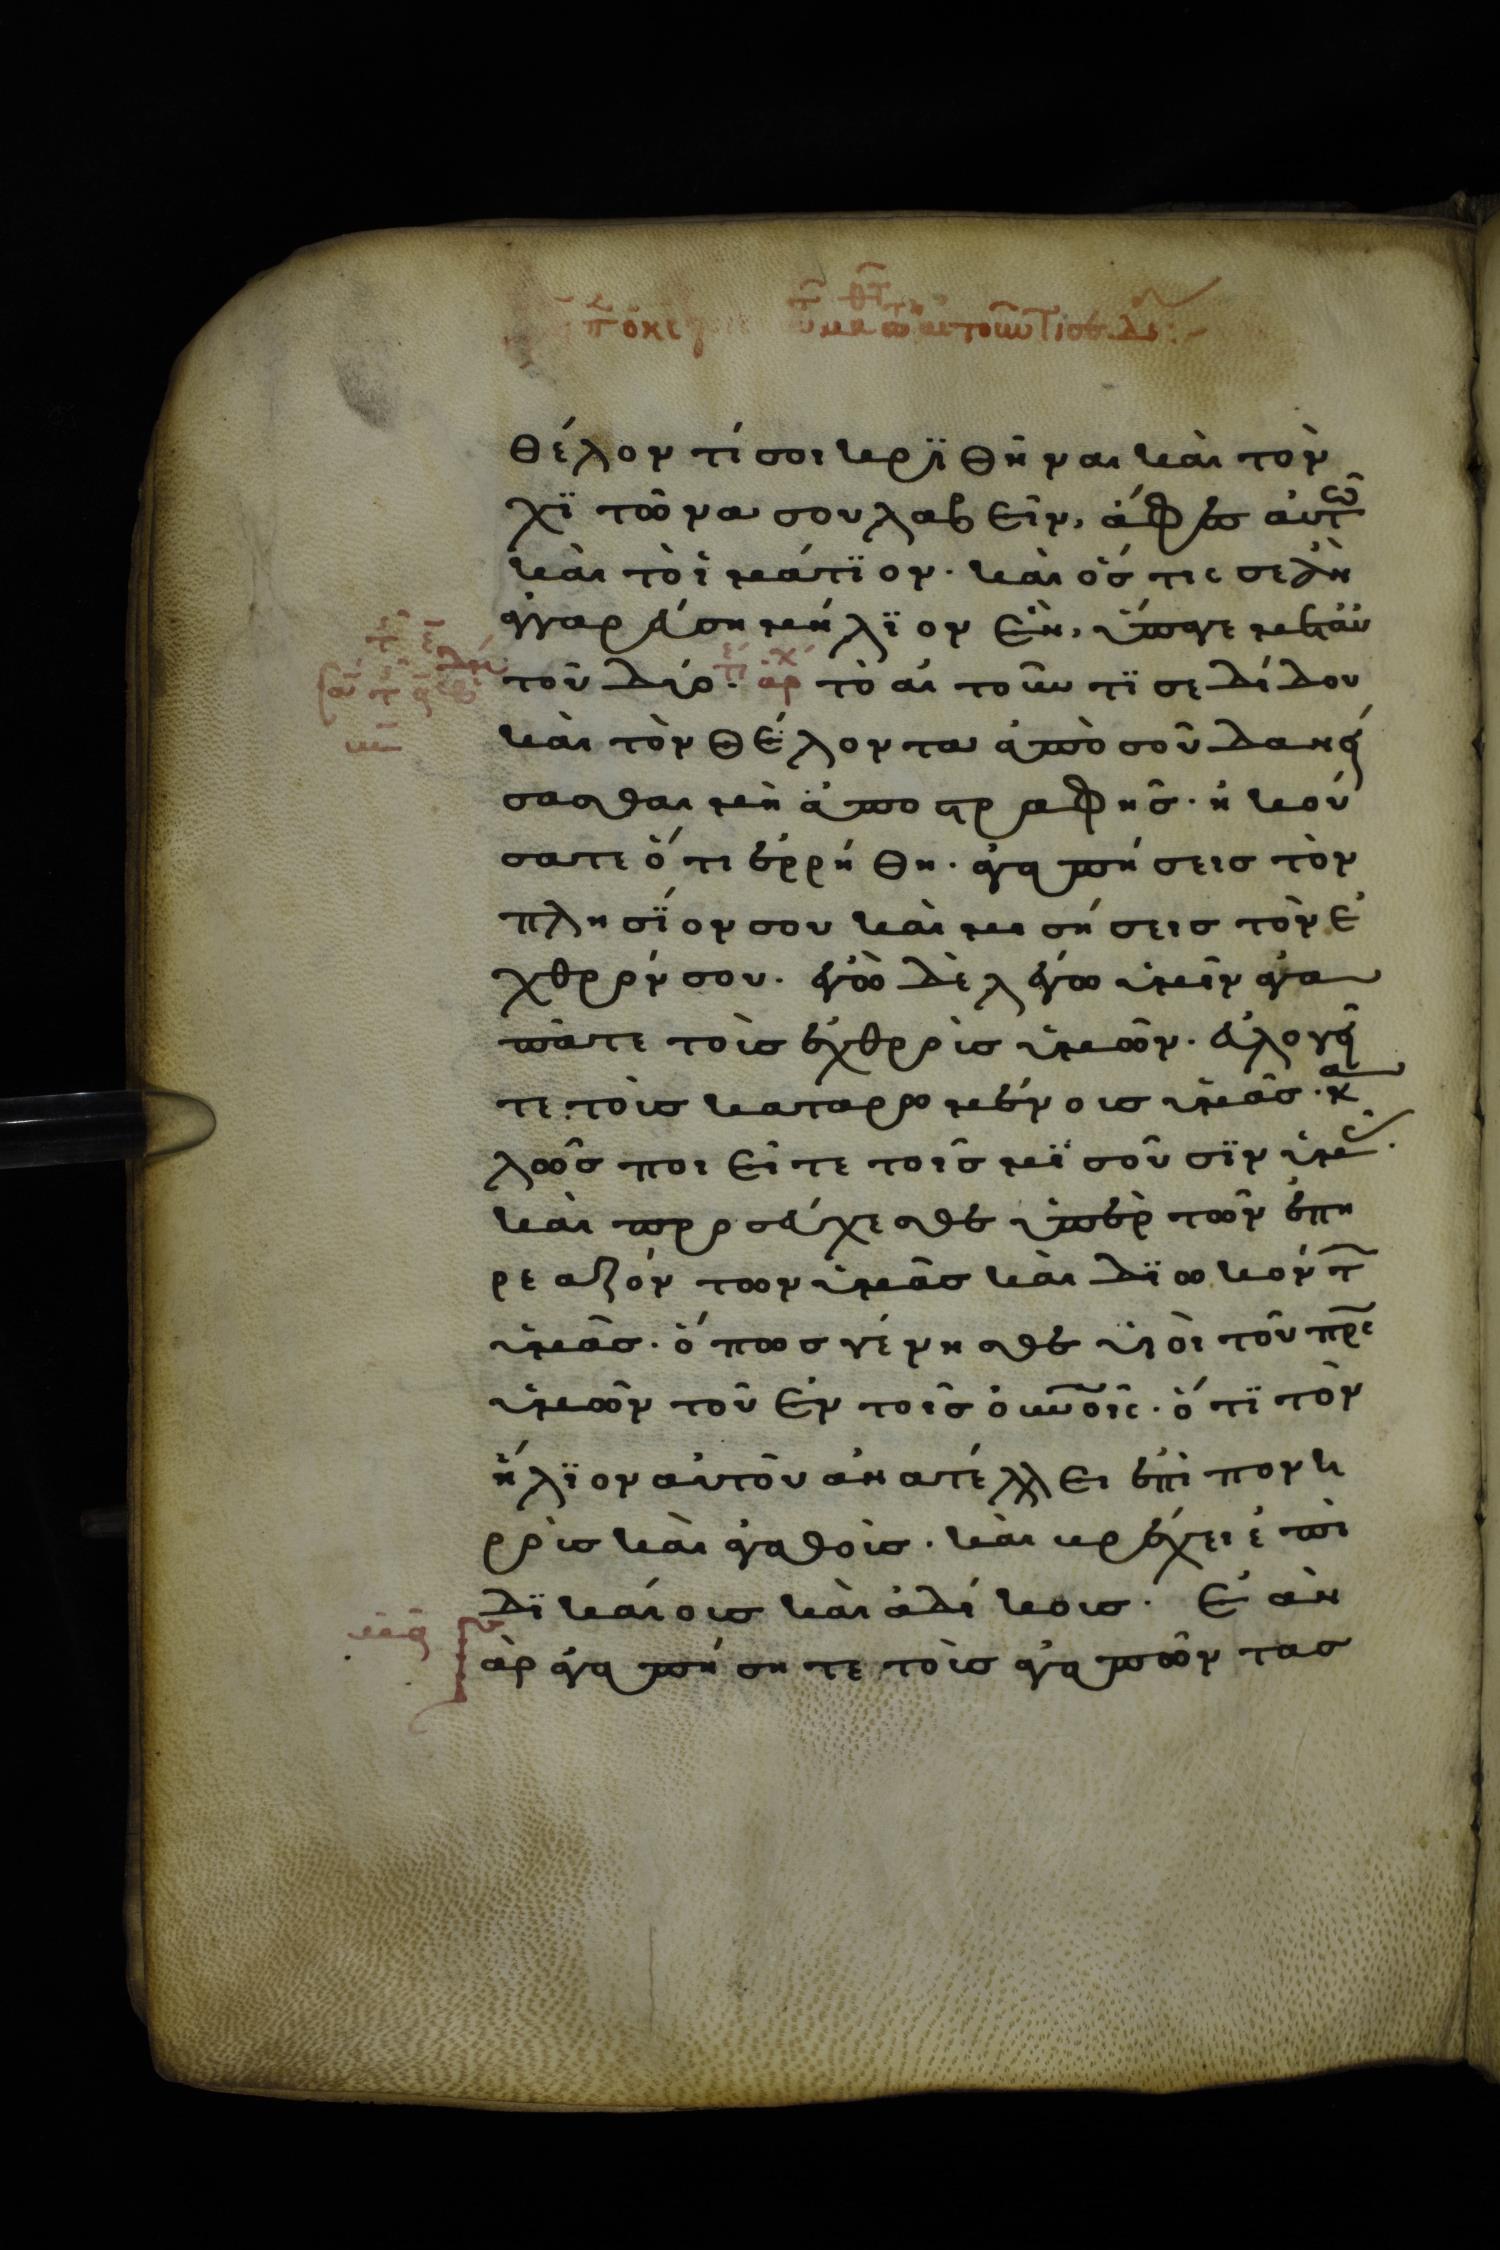 θέλοντί σοι κρϊθῆναι καὶ τὸν
χϊτῶνα σου λαβεῖν, ἄφες αὐτῶ
καὶ τὸ ἱμάτϊον· καὶ ὅστις σε ἀν
αγγαρεύση μήλϊον ἓν, ὕπαγε μετ αὐ
τοῦ δύο· τὸ αἰτοῦντϊ σε δίδου
καὶ τὸν θέλοντα ἀπὸ σοῦ δανεί
σασθαι μὴ ἀποστραφῆς· ἠκού
σατε ὅτι ἐρρήθη· ἀγαπήσεις τὸν
πλησϊόν σου καὶ μισήσεις τὸν ἐ
χθρόν σου· ἐγὼ δὲ λέγω ὑμῖν ἀγα
πᾶτε τοὺς ἐχθροὺς ὑμῶν· εὐλογεῖ
τε τοὺς καταρωμένους ὑμᾶς· κα
λῶς ποιεῖτε τοῖς μϊσοῦσϊν ὑμᾶς·
καὶ προσεύχεσθε ὑπὲρ τῶν ἐπη
ρεαζόντων ὑμᾶς καὶ δϊωκόντ
ὑμᾶς· ὅπως γένησθε υἱοὶ τοῦ πρς
ὑμῶν τοῦ ἐν τοῖς οὐνοῖς· ὅτϊ τὸν
ἥλϊον αὐτοῦ ἀνατέλλει ἐπὶ πονη
ροὺς καὶ ἀγαθοὺς· καὶ βρέχει ἐπὶ
δϊκαίους καὶ ἀδίκους· Ἐὰν
γὰρ ἀγαπήσητε τοὺς ἀγαπῶντας